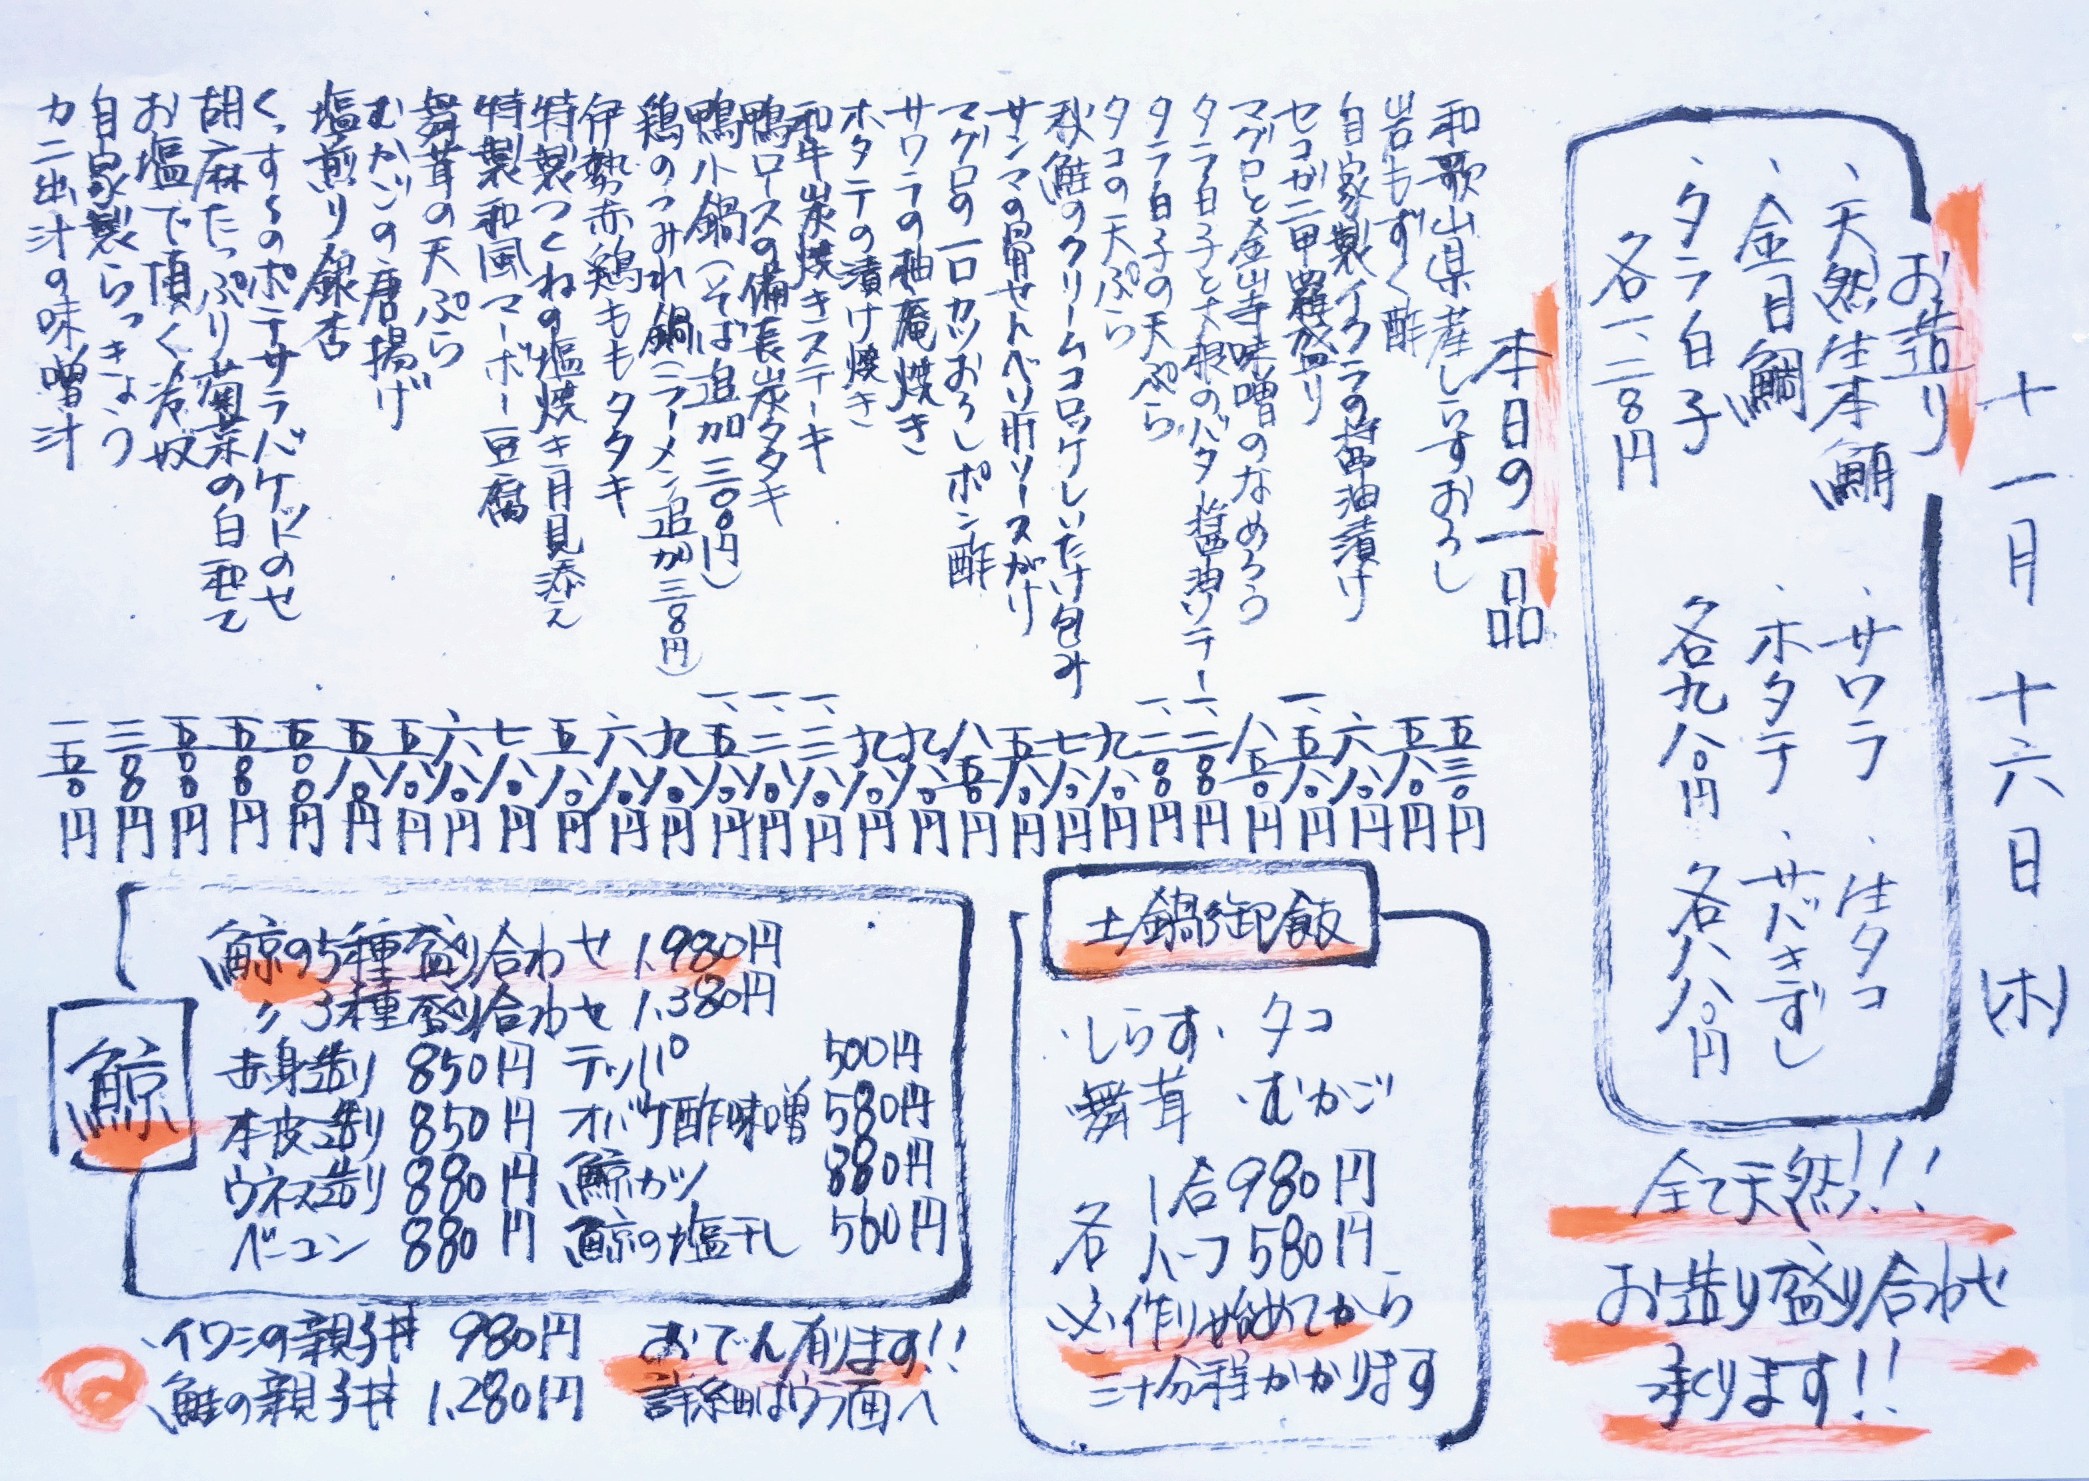 十一月十六日(木)
お造り
、天然生本鮪
、金目鯛
、タラ白子
各一、二八〇円
、サワラ
、ホタテ
各九八〇円
、生タコ
、サバきずし
各八八〇円
全て天然!!!
お造り盛り合わせ
承ります!!
本日の一品
和歌山県産しらすおろし 五三〇円
岩もずく酢 五八〇円
自家製イクラの醤油漬け 六八〇円
セコガニ甲羅盛り 一、五八〇円
マグロと金山寺味噌のなめろう 八五〇円
タラ白子と大根のバター醤油ソテー 一、二八〇円
タラ白子の天ぷら 一、二八〇円
タコの天ぷら 九八〇円
秋鮭のクリームコロッケしいたけ包み 七八〇円
サンマの骨せんべい肝ソースがけ 五八〇円
マグロの一口カツおろしポン酢 八五〇円
サワラの柚庵焼き 九八〇円
ホタテの漬け焼き 九八〇円
和牛炭焼きステーキ 一、三八〇円
鴨ロースの備長炭タタキ 一、二八〇円
鴨小鍋(そば追加三〇〇円) 一、五八〇円
鶏のつみれ鍋(ラーメン追加三八〇円) 九八〇円
伊勢赤鶏ももタタキ 六八〇円
特製つくねの塩焼き月見添え 五八〇円
特製和風マーボー豆腐 七八〇円
舞茸の天ぷら 六八〇円
むかごの唐揚げ 五八〇円
塩煎り銀杏 五八〇円
ポテサラバゲットのせ 五〇〇円
胡麻たっぷり菊菜の白和え 五八〇円
お塩で頂く冷奴 五〇〇円
自家製らっきょう 三八〇円
カニ出汁の味噌汁 一五〇円
土鍋御飯
・しらす・タコ
舞茸・むかご
各 1合980円
ハーフ580円
※作り始めてから
三十分程かかります
鯨
鯨の5種盛り合わせ 1,980円
〃 3種盛り合わせ 1,380円
赤身造り 850円 テッパ 500円
本皮造り 850円 オバケ酢味噌 580円
ウネス造り 880円 鯨カツ 880円
ベーコン 880円 鯨の塩干し 560円
・イワシの親子丼 980円
・鮭の親子丼 1,280円
おでん有ります!!
詳細はウラ面へ